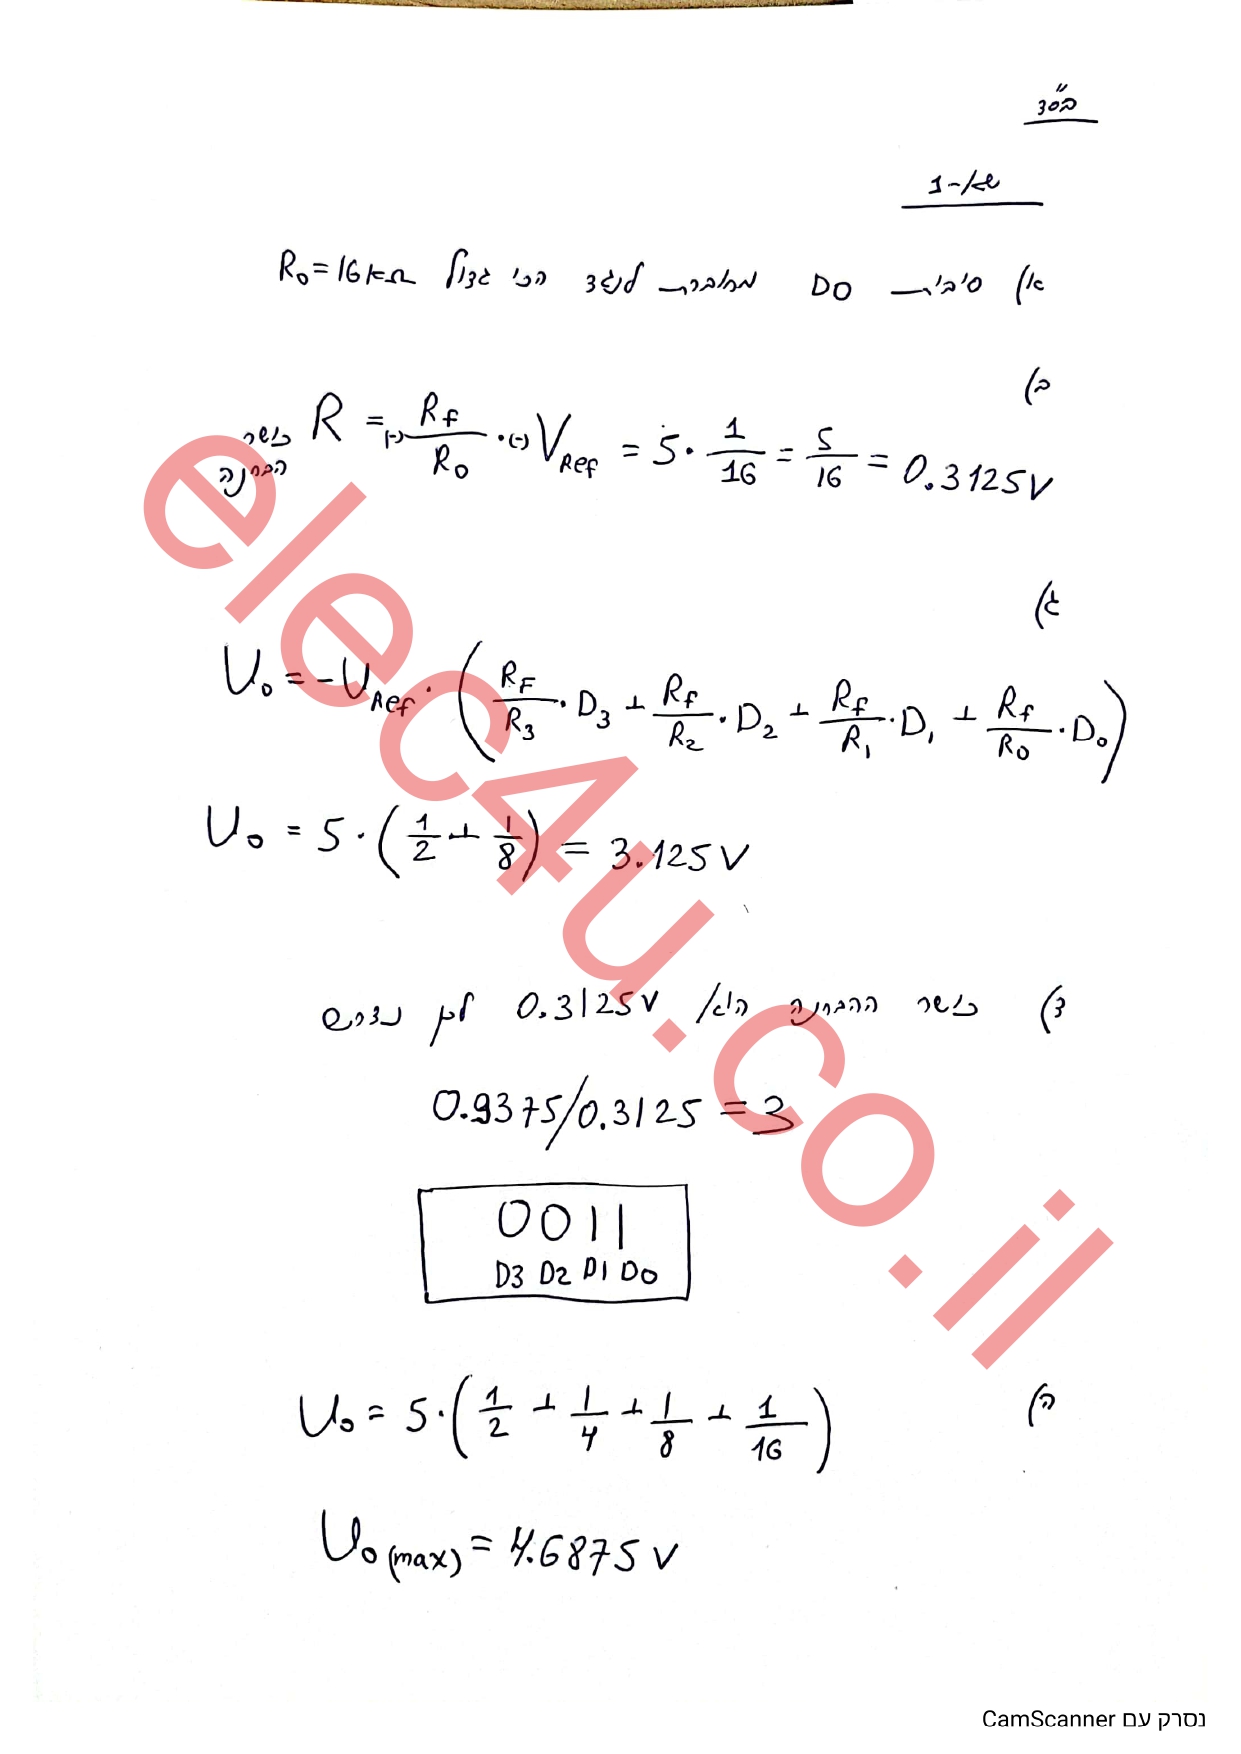 בס"ד
שא-1
א) סיבית D0 מחוברת לנגד הכי גדול R₀=16k
ב)
כושר הפרדה R = (-)Rf/R₀ · (-)VRef = 5 · 1/16 = 5/16 = 0.3125V
ג)
U₀ = -URef · (RF/R₃ · D₃ + Rf/R₂ · D₂ + Rf/R₁ · D₁ + Rf/R₀ · D₀)
U₀ = 5 · (1/2 + 1/8) = 3.125V
ד) כושר ההפרדה הוא 0.3125V לכן נדרש
0.9375/0.3125 = 3
0011
D3 D2 D1 D0
ה) U₀ = 5 · (1/2 + 1/4 + 1/8 + 1/16)
U₀(max) = 4.6875V
elec4u.co.il
נסרק עם CamScanner